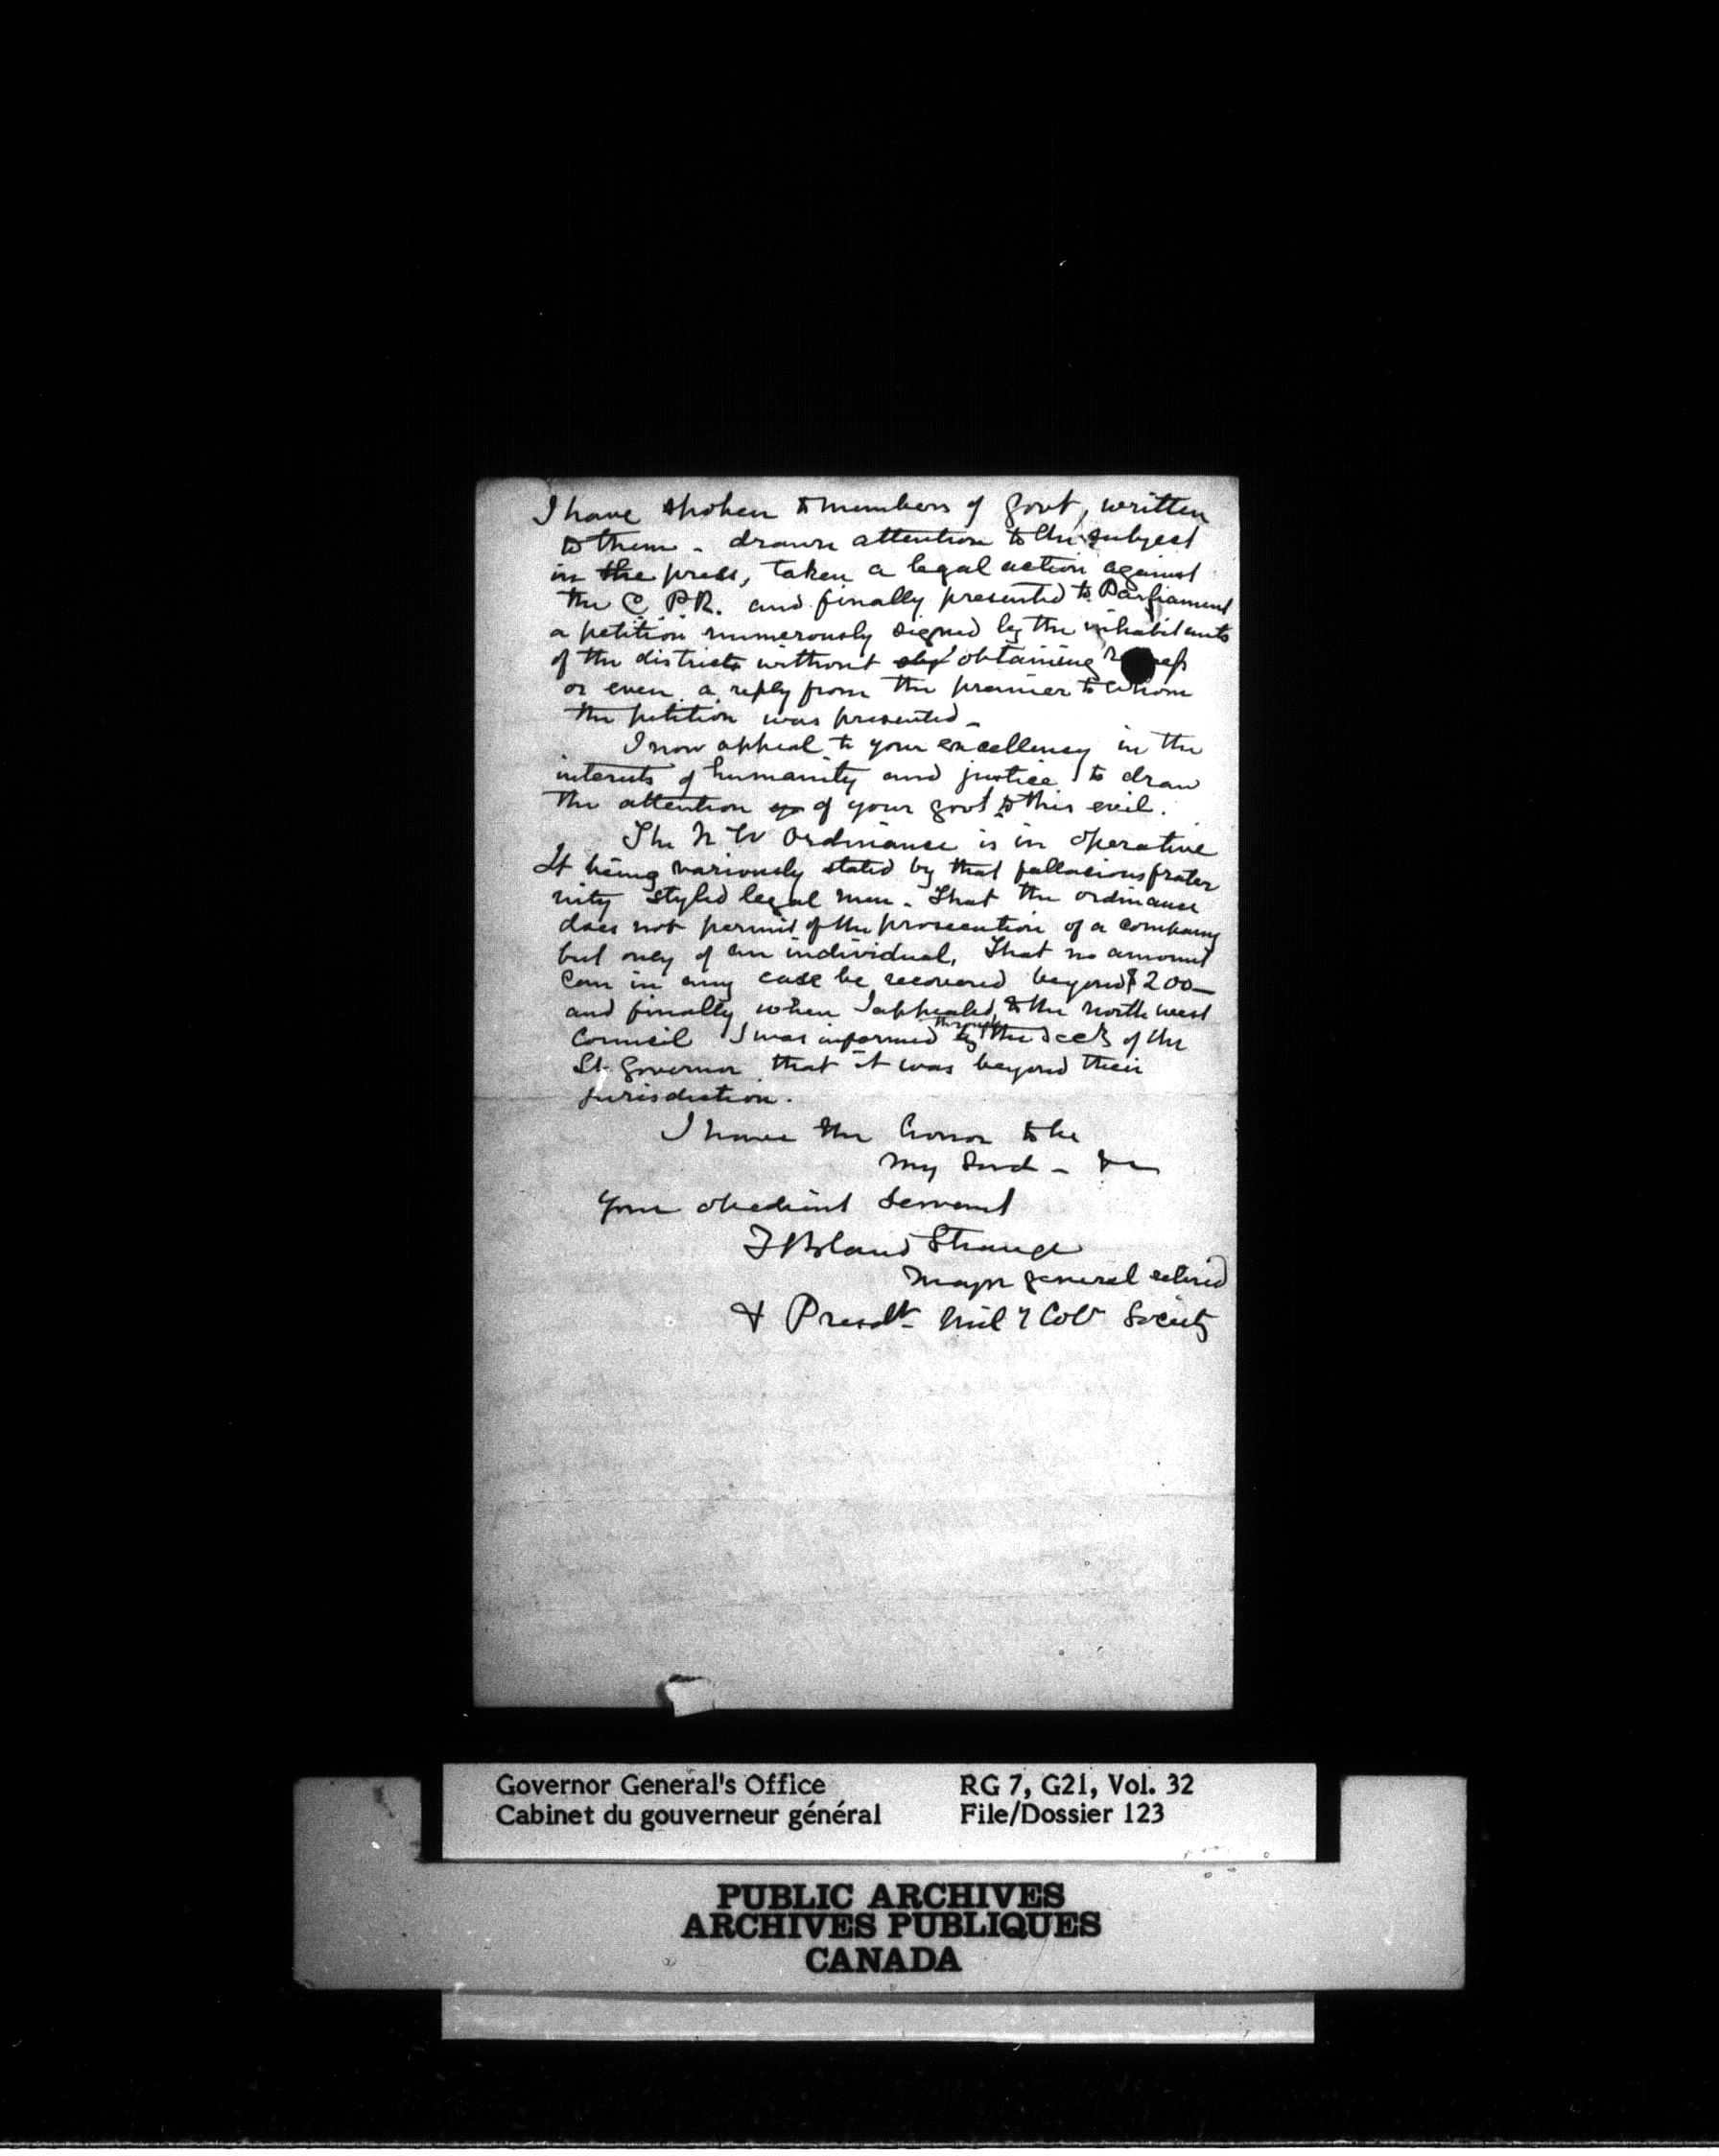 I have spoken to members of Govt, written
to them - drawn attention to the subject
in the press, taken a legal action against
the C. P.R. and finally presented to Parliament
a petition numerously signed by the inhabitants
of the districts without obtaining
or even a reply from the premier to whom
the petition was presented -
I now appeal to your excellency in the
interests of humanity and justice to draw
the attention of your govt to this evil.
The N W Ordinance is in operative
It being variously stated by that fallacious frater
nity styled legal men. That the ordinance
does not permit of the prosecution of a company
but only of an individual, That no amount
can in any case be recovered beyond $200 -
and finally when I appealed to the north west
Council I was informed through the Secty of the
Lt Governor that it was beyond their
jurisdiction.
I have the honor to be
My Lord - &c
Your obedient Servant
T Bland Strange
Major general retired
& Presdt - Mil & Col Society
Governor General's Office RG 7, G21, Vol. 32
Cabinet du gouverneur général File/Dossier 123
PUBLIC ARCHIVES
ARCHIVES PUBLIQUES
CANADA